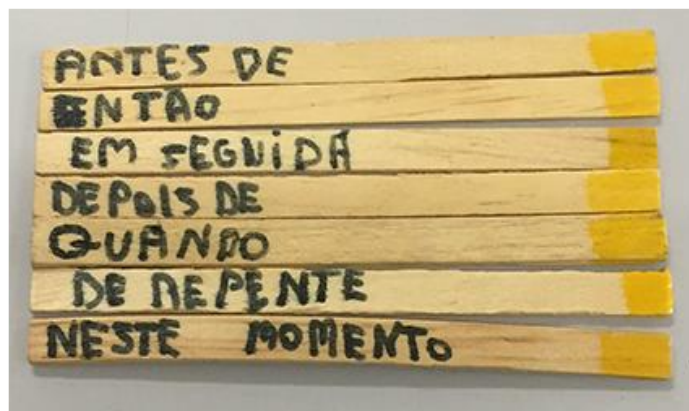 ANTES DE
ENTÃO
EM SEGUIDA
DEPOIS DE
QUANDO
DE REPENTE
NESTE MOMENTO